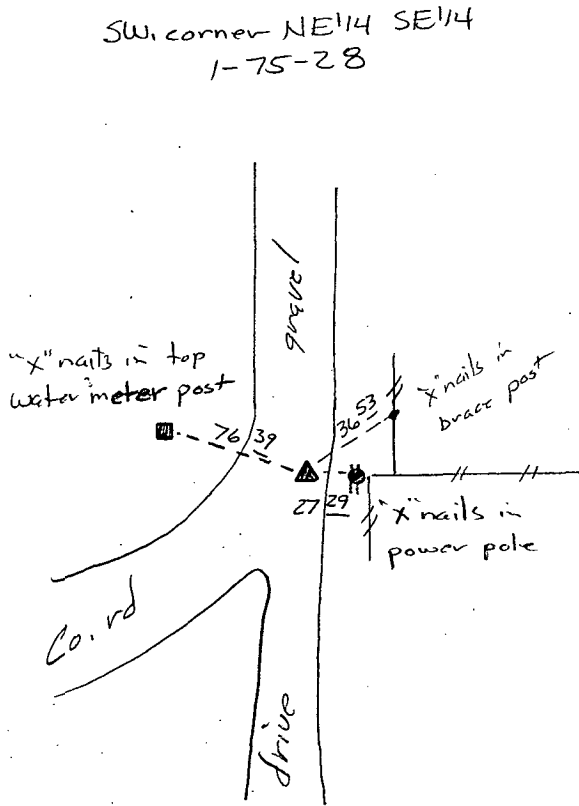 SW. corner NE 1/4 SE 1/4
1-75-28
gravel
"X" nails in top
water meter post
76 39
36 53
"X" nails in
brace post
27 29
"X" nails in
power pole
Co. rd
drive